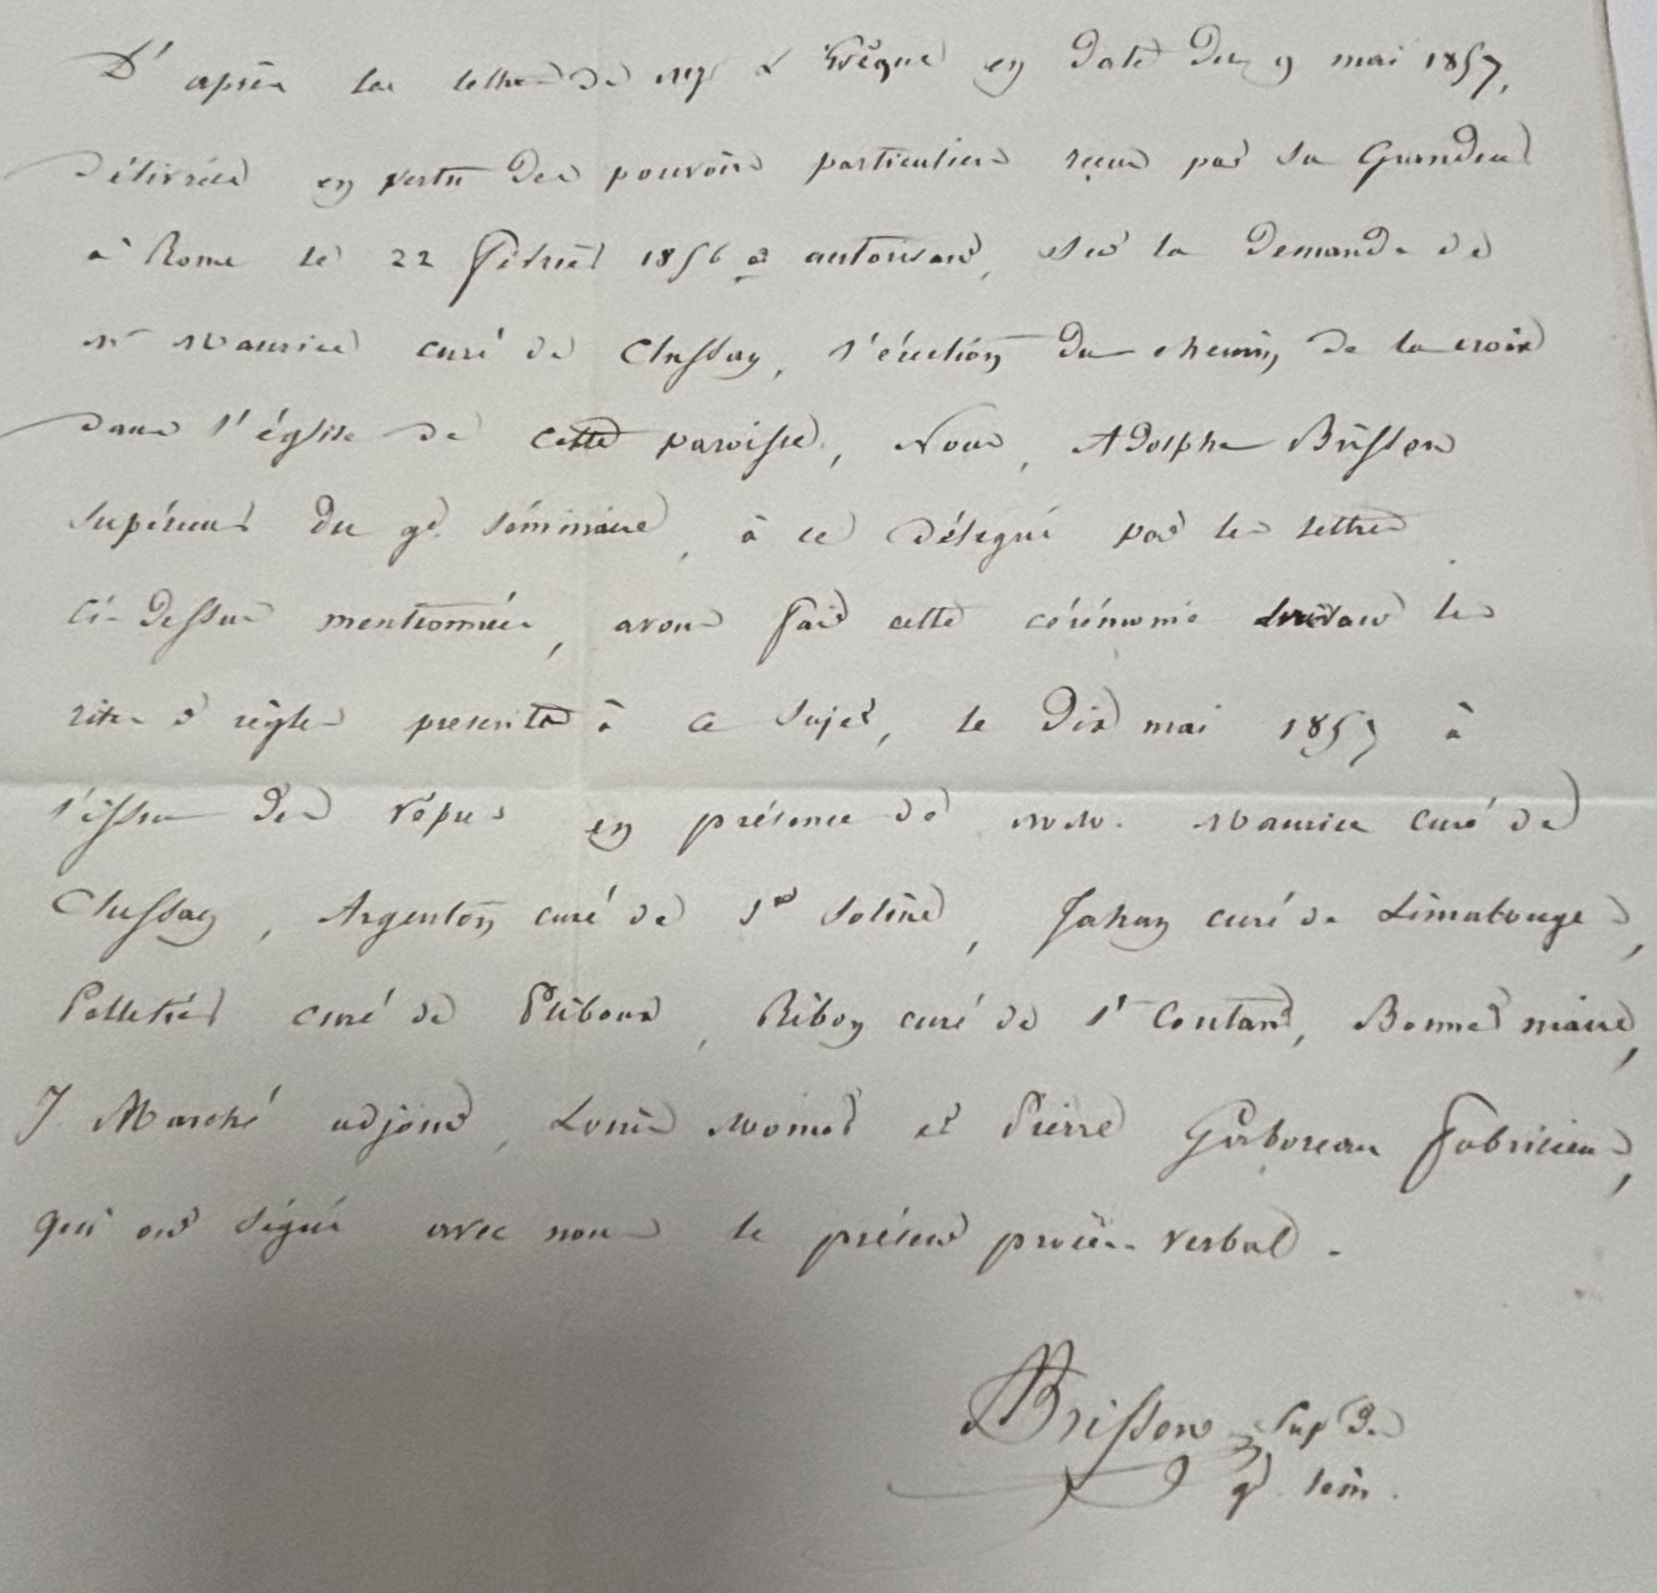 D'après les lettres de Mgr L'Evêque en date du 9 mai 1857,
délivrées en vertu des pouvoirs particuliers reçus par Sa Grandeur
à Rome le 22 février 1856 et autorisant, sur la demande de
Mr Maurice curé de Clussay, l'érection du chemin de la croix
dans l'église de cette paroisse, Nous, Adolphe Brisson
supérieur du gd. séminaire, à ce délégué par les lettres
ci-dessus mentionnées, avons fait cette cérémonie suivant les
rites et règles prescrites à ce sujet, le dix mai 1857 à
l'issue des vêpres en présence de MM. Maurice curé de
Clussay, Argenton curé de Ste Soline, Jahan curé de Limalonges,
Pelletier curé de Pliboux, Riboy curé de St Coutant, Bonnet maire,
J. Marché adjoint, Louis Moinet et Pierre fabriciens,
qui ont signé avec nous le présent procès-verbal.
ABrisson Sup du
gd. sém.